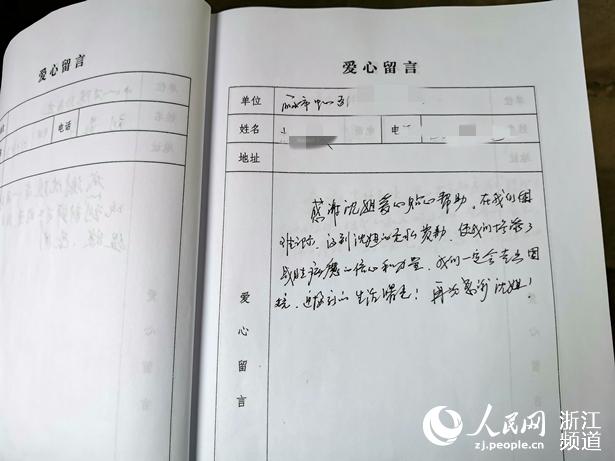 爱心留言
单位
姓名
电话
地址
爱心留言
爱心留言
单位
姓名
电话
地址
感谢沈姐爱心贴心帮助，在我们困
难之际，遇到沈姐的无私资助，使我们增添了
战胜病魔的信心和力量，我们一定会走出困
境，迎接新的生活曙光！再次感谢沈姐！
爱心留言
人民网
zj.people.cn
浙江
频道